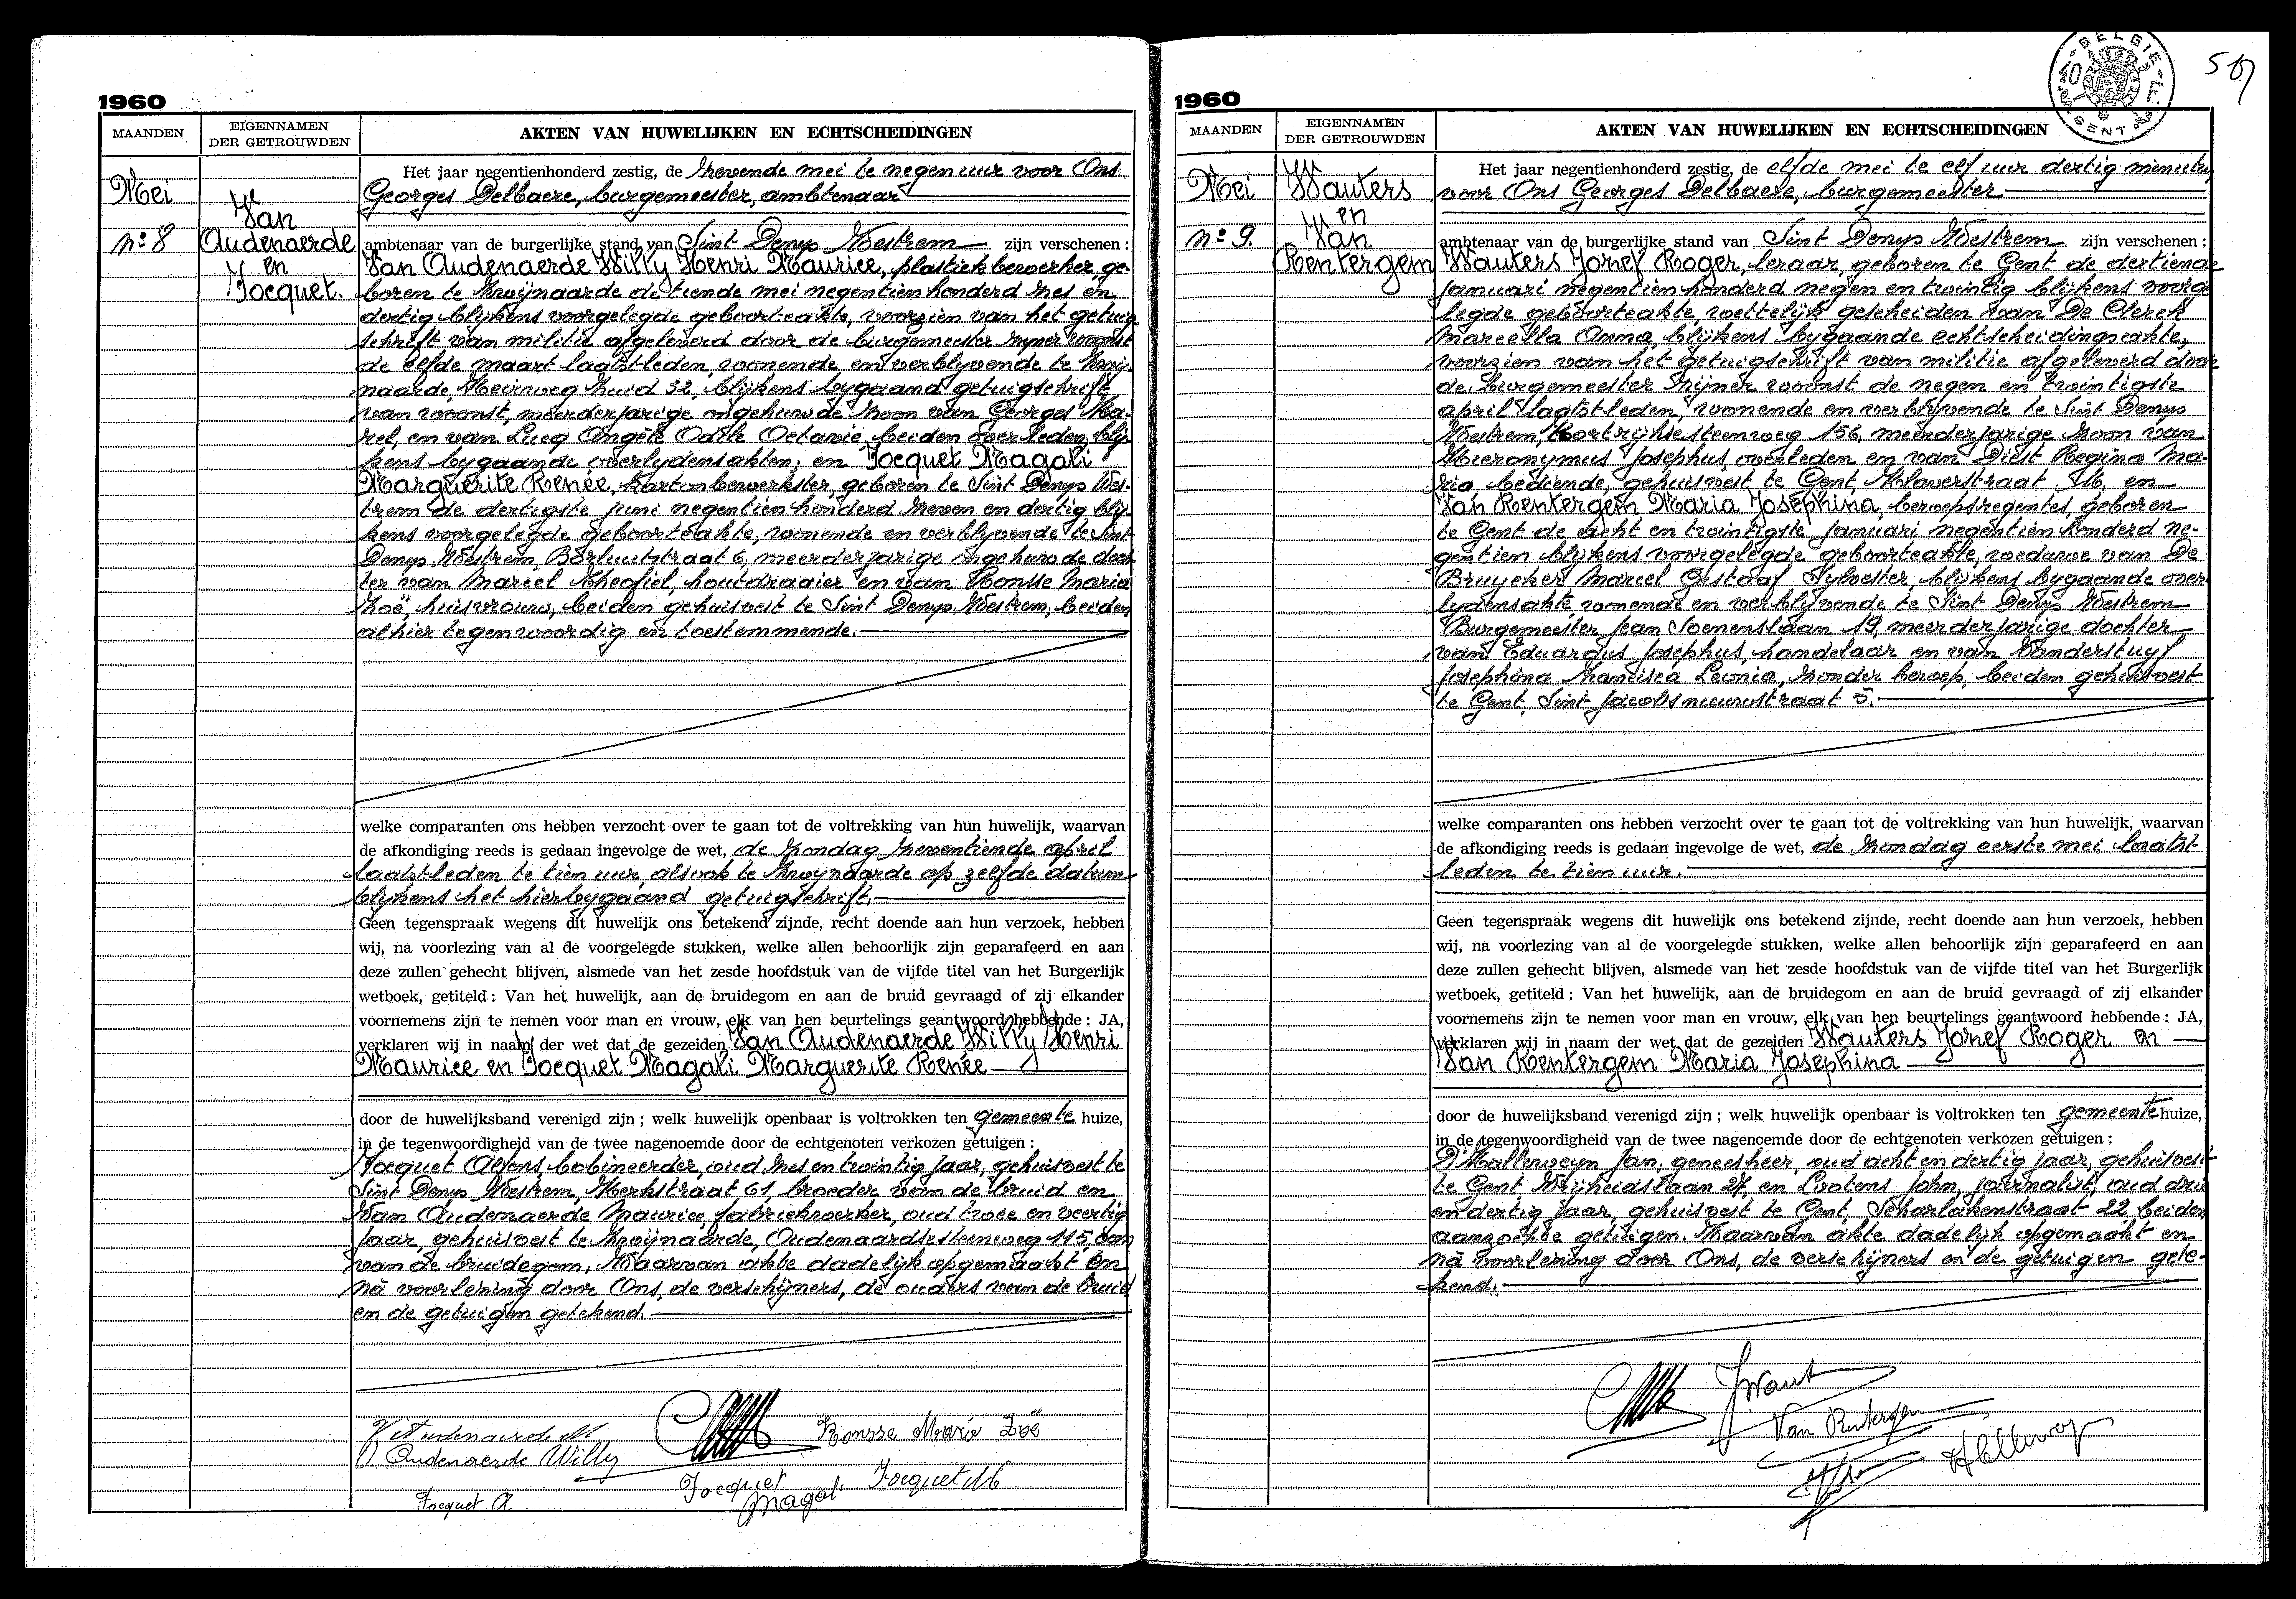 1960
MAANDEN
EIGENNAMEN
DER GETROUWDEN
AKTEN VAN HUWELIJKEN EN ECHTSCHEIDINGEN
Mei
nº 8
Van
Audenaerde
en
Jocquet.
Het jaar negentienhonderd zestig, de zevende mei te negen uur voor Ons
Georges Delbaere, burgemeester, ambtenaar
ambtenaar van de burgerlijke stand van Sint Denys Westrem zijn verschenen :
Van Audenaerde Willy Henri Maurice, plastiekbewerker, ge-
boren te Zwijnaarde de tiende mei negentienhonderd zes en
dertig blijkens voorgelegde geboorteakte, voorzien van het getuig
schrift van militie afgeleverd door de burgemeester zijner woonst
de elfde maart laatstleden, wonende en verblyvende te Zwij
naarde, Heirweg Zuid 32, blijkens bygaand getuigschrift
van woonst, meerderjarige ongehuwde zoon van Georges Ka-
rel, en van Lucq Angèle Odile Octavie, beiden overleden, blij
kens bygaande overlydensakten; en Jocquet Magali
Marguerite Renée, kartonbewerkster, geboren te Sint Denys Wes-
trem de dertigste juni negentienhonderd zeven en dertig blij
kens voorgelegde geboorteakte, wonende en verblyvende te Sint
Denys Westrem, Borluutstraat 6, meerderjarige ongehuwde doch
ter van Marcel Theofiel, houtdraaier en van Ronsse Maria
Zoë, huisvrouw, beiden gehuisvest te Sint Denys Westrem, beiden
alhier tegenwoordig en toestemmende.
welke comparanten ons hebben verzocht over te gaan tot de voltrekking van hun huwelijk, waarvan
de afkondiging reeds is gedaan ingevolge de wet, de zondag zeventiende april
laatstleden te tien uur, alsook te Zwijnaarde op zelfde datum
blijkens het hierbygaand getuigschrift.
Geen tegenspraak wegens dit huwelijk ons betekend zijnde, recht doende aan hun verzoek, hebben
wij, na voorlezing van al de voorgelegde stukken, welke allen behoorlijk zijn geparafeerd en aan
deze zullen gehecht blijven, alsmede van het zesde hoofdstuk van de vijfde titel van het Burgerlijk
wetboek, getiteld : Van het huwelijk, aan de bruidegom en aan de bruid gevraagd of zij elkander
voornemens zijn te nemen voor man en vrouw, elk van hen beurtelings geantwoord hebbende : JA,
verklaren wij in naam der wet dat de gezeiden Van Audenaerde Willy Henri
Maurice en Jocquet Magali Marguerite Renée
door de huwelijksband verenigd zijn ; welk huwelijk openbaar is voltrokken ten gemeente huize,
in de tegenwoordigheid van de twee nagenoemde door de echtgenoten verkozen getuigen :
Jocquet Alfons, bobineerder, oud zes en twintig jaar, gehuisvest te
Sint Denys Westrem, Kerkstraat 61, broeder van de bruid en
Van Audenaerde Maurice, fabriekwerker, oud twee en veertig
jaar, gehuisvest te Zwijnaarde, Oudenaardsesteenweg 115, oom
van de bruidegom. Waarvan akte dadelijk opgemaakt en
nà voorlezing door Ons, de verschijners, de ouders van de bruid
en de getuigen getekend.
V Audenaerde M
V Oudenaerde Willy
Ronsse Marie Zoë
Jocquet
Magali
Jocquet M
Jocquet A
1960
MAANDEN
EIGENNAMEN
DER GETROUWDEN
AKTEN VAN HUWELIJKEN EN ECHTSCHEIDINGEN
BELGIE
GENT
Mei
nº 9.
Wauters
en
Van
Rentergem
Het jaar negentienhonderd zestig, de elfde mei te elf uur dertig minuten
voor Ons Georges Delbaere, burgemeester
ambtenaar van de burgerlijke stand van Sint Denys Westrem zijn verschenen :
Wauters Jozef Roger, leraar, geboren te Gent de dertiende
januari negentienhonderd negen en twintig blijkens voorge
legde geboorteakte, wettelijk gescheiden van De Clerck
Marcella Anna, blijkens bygaande echtscheidingsakte,
voorzien van het getuigschrift van militie afgeleverd door
de burgemeester zijner woonst de negen en twintigste
april laatstleden, wonende en verblijvende te Sint Denys
Westrem, Kortrijksesteenweg 156, meerderjarige zoon van
Hieronymus Josephus, overleden en van Diest Regina Ma-
ria, bediende, gehuisvest te Gent, Klaverstraat 16, en
Van Rentergem Maria Josephina, beroepsregentes, geboren
te Gent de acht en twintigste januari negentienhonderd ne-
gentien blijkens voorgelegde geboorteakte, weduwe van De
Bruycker Marcel Gustaaf Sylvester, blijkens bygaande over-
lydensakte, wonende en verblijvende te Sint Denys Westrem
Burgemeester Jean Soenenslaan 19, meerderjarige dochter
van Eduardus Josephus, handelaar en van Vanderstuyf
Josephina Francisca Leonia, zonder beroep, beiden gehuisvest
te Gent, Sint Jacobsnieuwstraat 5.
welke comparanten ons hebben verzocht over te gaan tot de voltrekking van hun huwelijk, waarvan
de afkondiging reeds is gedaan ingevolge de wet, de zondag eerste mei laatst
leden te tien uur.
Geen tegenspraak wegens dit huwelijk ons betekend zijnde, recht doende aan hun verzoek, hebben
wij, na voorlezing van al de voorgelegde stukken, welke allen behoorlijk zijn geparafeerd en aan
deze zullen gehecht blijven, alsmede van het zesde hoofdstuk van de vijfde titel van het Burgerlijk
wetboek, getiteld : Van het huwelijk, aan de bruidegom en aan de bruid gevraagd of zij elkander
voornemens zijn te nemen voor man en vrouw, elk van hen beurtelings geantwoord hebbende : JA,
verklaren wij in naam der wet dat de gezeiden Wauters Jozef Roger en
Van Rentergem Maria Josephina
door de huwelijksband verenigd zijn ; welk huwelijk openbaar is voltrokken ten gemeente huize,
in de tegenwoordigheid van de twee nagenoemde door de echtgenoten verkozen getuigen :
D'Hallerweyn Jan, geneesheer, oud acht en dertig jaar, gehuisvest
te Gent, Vrijheidslaan 27, en Lootens John, journalist, oud drie
en dertig jaar, gehuisvest te Gent, Scharlakenstraat 22, beiden
aanzochte getuigen. Waarvan akte dadelijk opgemaakt en
nà voorlezing door Ons, de verschijners en de getuigen gete-
kend.
Van Rentergem